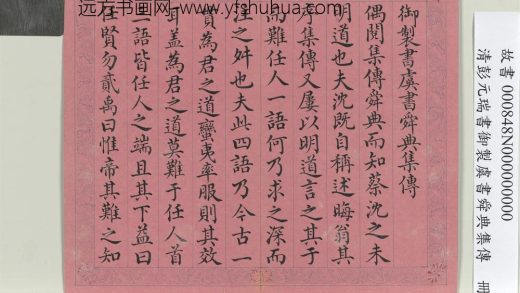 远方书画网 www.yfshuhua.com
御製書虞書舜典集傳
偶閱集傳舜典而知蔡沈之未
明道也夫沈既自稱述晦翁其
序集傳又屢以明道言之其于
而難任人一語何乃求之深而
注之舛也夫此四語乃今古一
貫為君之道蠻夷率服則其效
耳盖為君之道莫難于任人首
二語皆任人之端且其下益曰
任賢勿貳禹曰惟帝其難之知
故書 000848N000000000
清彭元瑞書御製虞書舜典集傳 冊